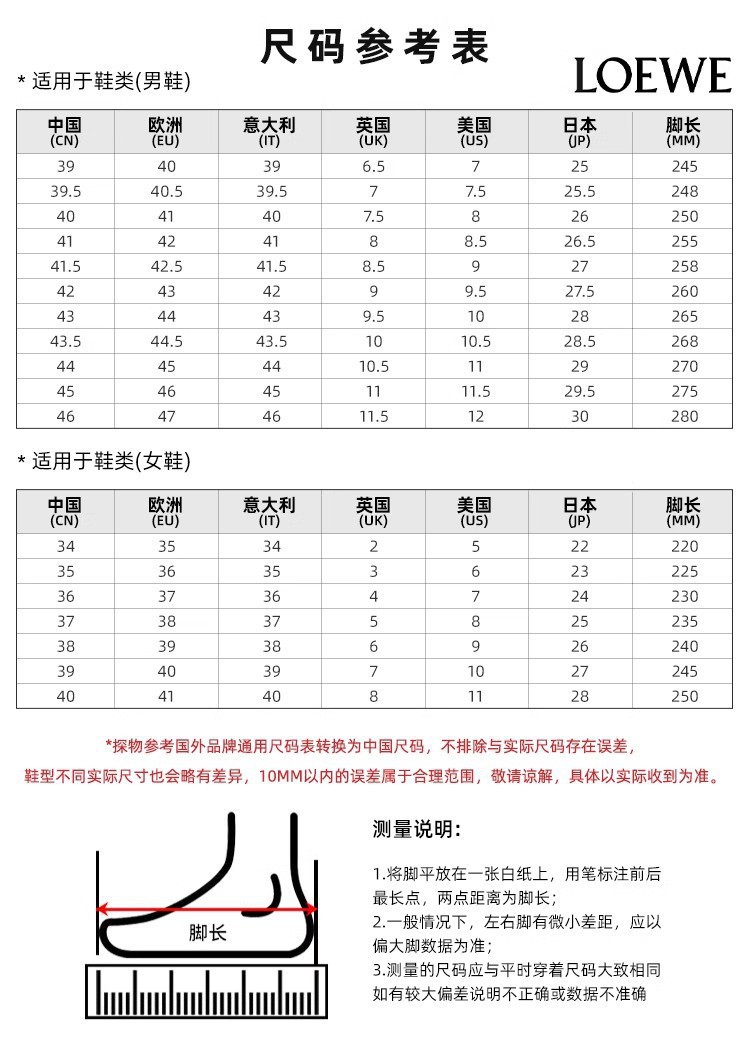 尺码参考表
* 适用于鞋类(男鞋)
LOEWE
中国 欧洲 意大利 英国 美国 日本 脚长
(CN) (EU) (IT) (UK) (US) (JP) (MM)
39 40 39 6.5 7 25 245
39.5 40.5 39.5 7 7.5 25.5 248
40 41 40 7.5 8 26 250
41 42 41 8 8.5 26.5 255
41.5 42.5 41.5 8.5 9 27 258
42 43 42 9 9.5 27.5 260
43 44 43 9.5 10 28 265
43.5 44.5 43.5 10 10.5 28.5 268
44 45 44 10.5 11 29 270
45 46 45 11 11.5 29.5 275
46 47 46 11.5 12 30 280
* 适用于鞋类(女鞋)
中国 欧洲 意大利 英国 美国 日本 脚长
(CN) (EU) (IT) (UK) (US) (JP) (MM)
34 35 34 2 5 22 220
35 36 35 3 6 23 225
36 37 36 4 7 24 230
37 38 37 5 8 25 235
38 39 38 6 9 26 240
39 40 39 7 10 27 245
40 41 40 8 11 28 250
*探物参考国外品牌通用尺码表转换为中国尺码，不排除与实际尺码存在误差，
鞋型不同实际尺寸也会略有差异，10MM以内的误差属于合理范围，敬请谅解，具体以实际收到为准。
脚长
测量说明：
1.将脚平放在一张白纸上，用笔标注前后
最长点，两点距离为脚长；
2.一般情况下，左右脚有微小差距，应以
偏大脚数据为准；
3.测量的尺码应与平时穿着尺码大致相同
如有较大偏差说明不正确或数据不准确